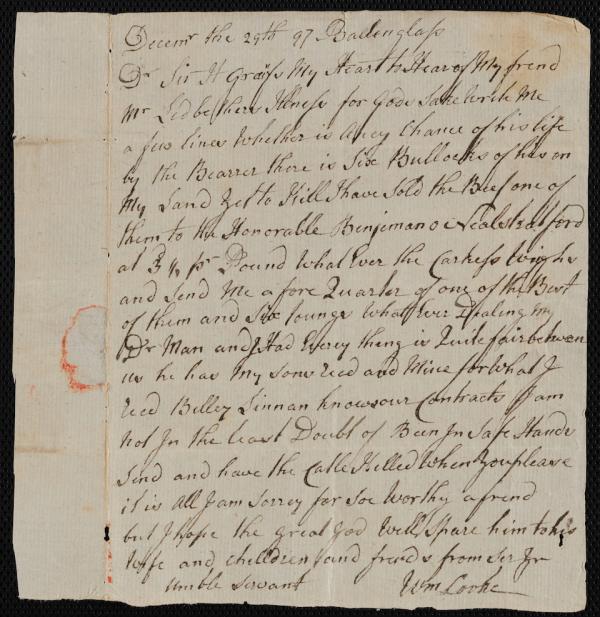 Decemr the 29th 97 Ballenglass
Dr Sir It Grayss My Heart to Hear of My frend
Mr Ledbethers Illness for Gods Sake Write Me
a few lines Whether is Aney Chance of his life
by the Bearrer there is Six Bullocks of his on
My Land Yet to Kill I have Sold the Beef one of
them to the Honorable Benjeman Stratford
at 3 pr Pound What Ever the Carkess Weighs
and Send Me a fore Quarter of one of the Best
of them and Six toungs What Ever Dealing my
Dr Man and I Had Every thing is Quite fair between
us he has My Sons and Mine for What I
Billey Linnan knows our Contracts I am
not In the least Doubt of Been In Safe Hands
Send and have the Catle Killed When You please
it is All I am Sorrey for Soe Worthy a frend
but I hope the great God Will Spare him to his
Wife and Children and frends from Ser Yr
Umble Servant Wm Cooke